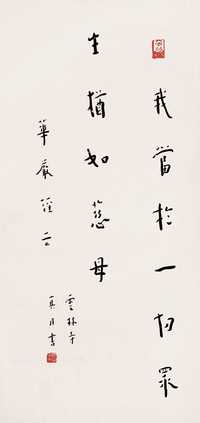 我當於一切眾
生猶如慈母
華嚴經云
雲林寺
真月書